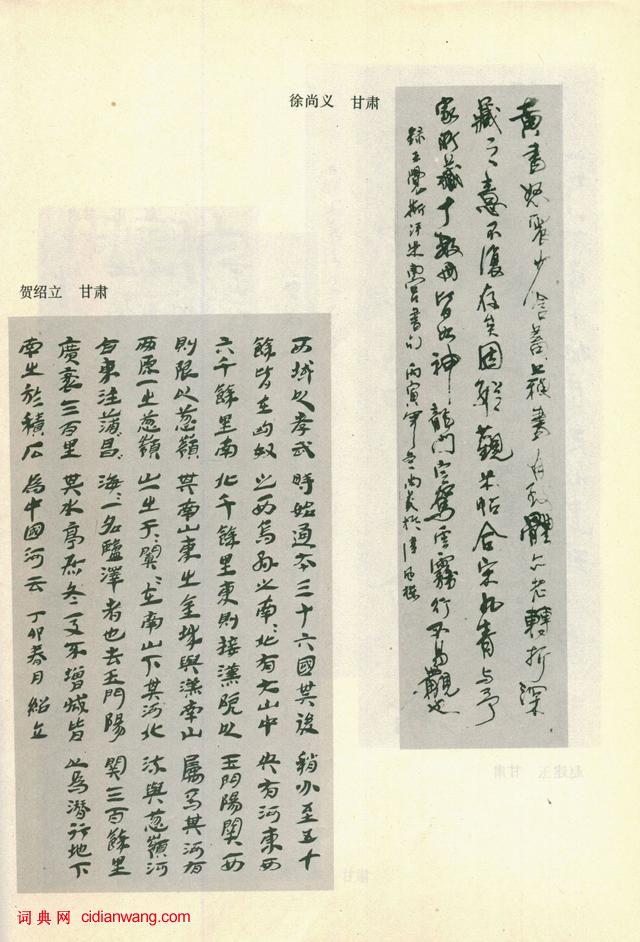 徐尚义 甘肃
黄書怒張少含蓄
藏之意不復存矣因 觀米帖合宋九青与予
家所藏十数冊皆如神龍 空 雲霧行不易觀也
録王覺斯評米南宫書句 丙寅年 尚義於清風樓
贺绍立 甘肃
西域以孝武時始通本三十六國其後稍分至五十
餘皆在匈奴之西烏孫之南〻北有大山中央有河東西
六千餘里南北千餘里東則接漢阸以玉門陽関西
則限以葱嶺其南山東出金城與漢南山属焉其河有
两原一出葱嶺山一出于〻闐〻在南山下其河北流與葱嶺河
合東注蒲昌海〻一名鹽澤者也去玉門陽関三百餘里
廣袤三百里其水亭居冬夏不增减皆以為潛行地下
南出於積石為中國河云 丁卯春月 紹立
词典网 cidianwang.com